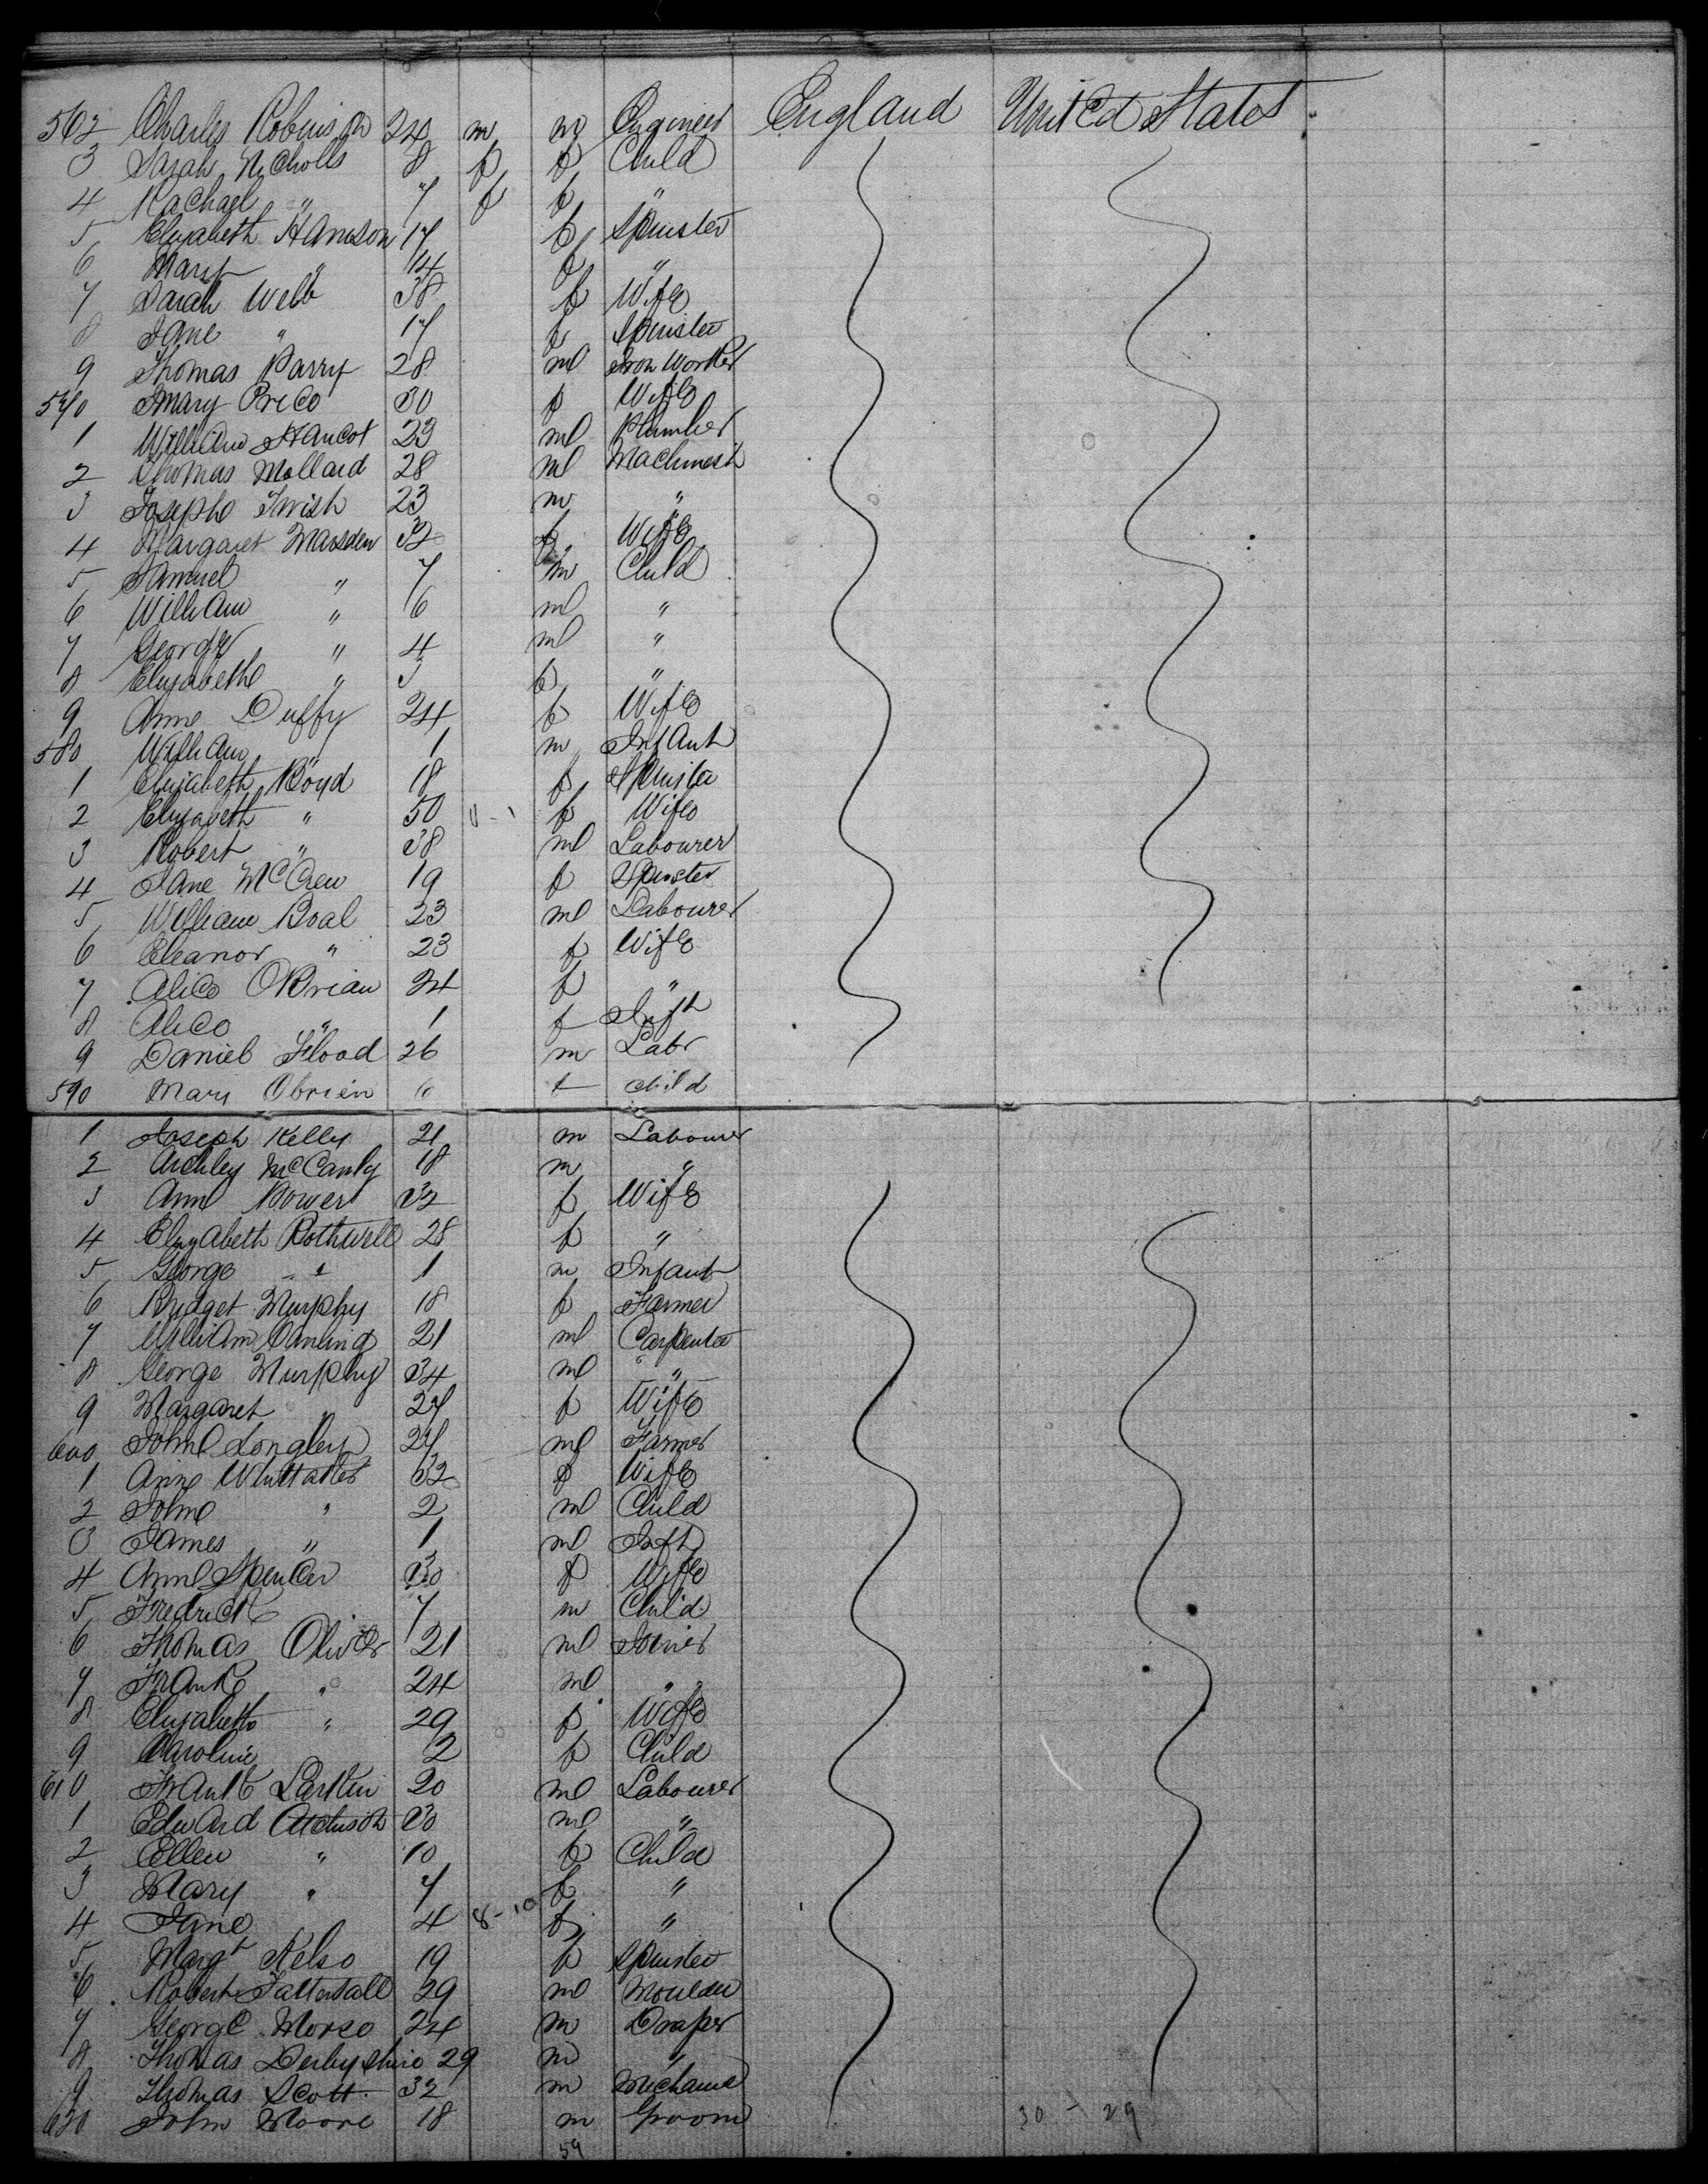 562 Charles Robinson 24 m m Engineer England United States
3 Sarah Nicholls 8 f f Child
4 Rachael " 7 f f "
5 Elizabeth Hanson 17 f Spinster
6 Mary " 14 f "
7 Sarah Webb 38 f Wife
8 Jane " 17 f Spinster
9 Thomas Parry 28 m Iron Worker
570 Mary Price 30 f Wife
1 William Hancot 23 m Plumber
2 Thomas Mollard 28 m Machinest
3 Joseph 23 m "
4 Margaret Marsden 32 f Wife
5 Samuel " 7 m Child
6 William " 6 m "
7 George " 4 m "
8 Elizabeth " 3 f "
9 Anne Duffy 24 f Wife
580 William " 1 m Infant
1 Elizabeth Boyd 18 f Spinster
2 Elizabeth " 50 11-1 f Wife
3 Robert " 38 m Labourer
4 Jane McCrew 19 f Spinster
5 William Boal 23 m Labourer
6 Eleanor " 23 f Wife
7 Alice OBrian 24 f "
8 Alice " 1 f Inft
9 Daniel Flood 26 m Labr
590 Mary Obrien " f child
1 Joseph Kelly 21 m Labourer
2 Archley McCanly 18 m "
3 Ann Power 32 f Wife
4 Elizabeth Rothwell 28 f "
5 George " 1 m Infant
6 Bridget Murphy 18 f Farmer
7 William 21 m Carpenter
8 George Murphy 34 m "
9 Margaret " 27 f Wife
600 John Longley 27 m Farmer
1 Anne Whittaker 32 f Wife
2 John " 2 m Child
3 James " 1 m Inft
4 Anne Spencer 30 f Wife
5 Fredrick 7 m Child
6 Thomas Oliver 21 m Joiner
7 Frank " 24 m "
8 Elizabeth " 29 f Wife
9 Caroline 2 f Child
610 Frank Larkin 20 m Labourer
1 Edward Atchison 30 m "
2 Ellen " 10 f Child
3 Mary " 7 f "
4 Jane 4 8-10 f "
5 Margt Kelso 19 f Spinster
6 Robert Tattersall 29 m Moulder
7 George Morse 24 m Draper
8 Thomas Derbyshire 29 m "
9 Thomas Scott 32 m Mechanic
620 John Moore 18 m Groom
59
30 - 29